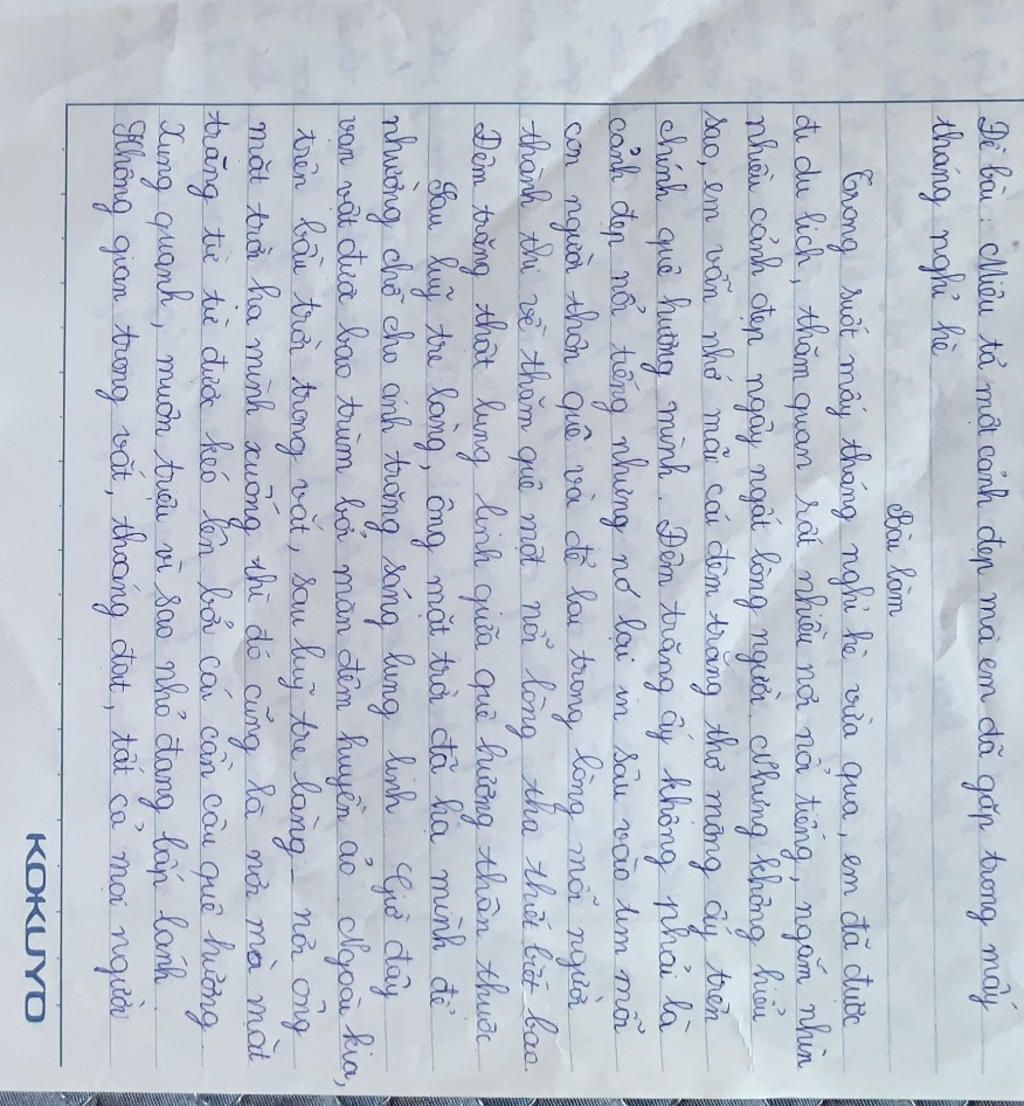 Đề bài: Miêu tả một cảnh đẹp mà em đã gặp trong mấy
tháng nghỉ hè
Bài làm
Trong suốt mấy tháng nghỉ hè vừa qua, em đã được
đi du lịch, thăm quan rất nhiều nơi nổi tiếng, ngắm nhìn
nhiều cảnh đẹp ngây ngất lòng người. Nhưng không hiểu
sao, em vẫn nhớ mãi cái đêm trăng thơ mộng ấy trên
chính quê hương mình. Đêm trăng ấy không phải là
cảnh đẹp nổi tiếng nhưng nó lại in sâu vào tim mỗi
con người thôn quê và để lại trong lòng mỗi người
thành thị về thăm quê một nỗi lòng tha thiết biết bao.
Đêm trăng thật lung linh giữa quê hương thân thuộc
Sau luỹ tre làng, ông mặt trời đã hạ mình để
nhường chỗ cho ánh trăng sáng lung linh Giờ đây
vạn vật được bao trùm bởi màn đêm huyền ảo. Ngoài kia,
trên bầu trời trong vắt, sau luỹ tre làng - nơi ông
mặt trời hạ mình xuống thì đó cũng là nơi mà mặt
trăng từ từ được kéo lên bởi cái cần câu quê hương.
Xung quanh, muôn triệu vì sao nhỏ đang lấp lánh
Không gian trong vắt, thoáng đạt, tất cả mọi người
KOKUYO